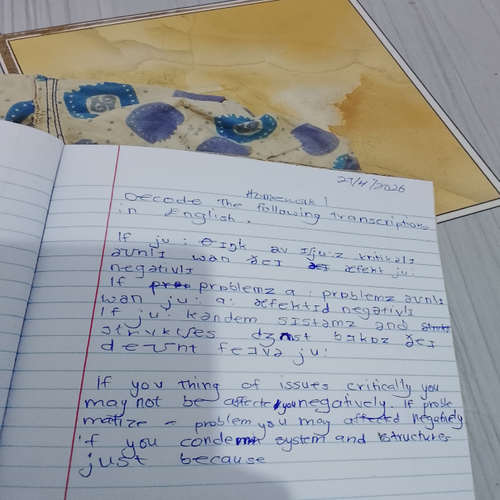 27/4/2026
Homework 1
Decode The following transcriptions
in English.
If ju: θɪŋk av ɪʃju:z kritikalɪ
əʊnlɪ wan ðeɪ æfekt ju:
negatɪvlɪ
If problemz a: problemz əʊnlɪ
wan ju: a: æfektɪd negatɪvlɪ
If ju: kandem sɪstəmz and
strʌktʃəs dʒʌst bɪkɒz ðeɪ
dəʊnt feɪvə ju:
If you thing of issues critically you
may not be affected you negatively. If proble
matize - problem you may affected negatively
if you condemn system and structures
just because